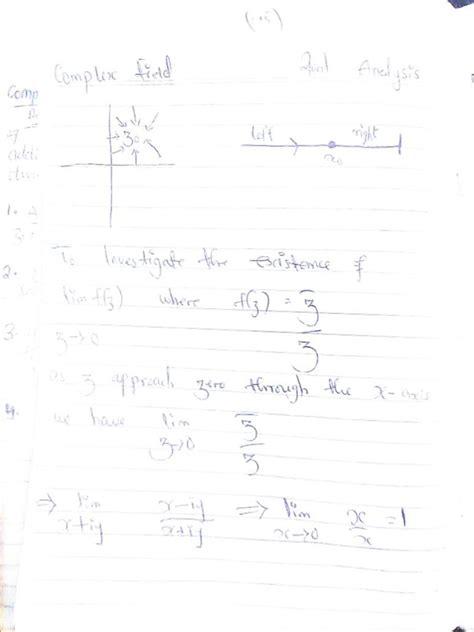 Complex field
Real Analysis
Comp
z₀
left
right
x₀
1.
To Investigate the existence of
2.
lim f(z) where f(z) = z̅
3.
z→0 z
as z approach zero through the x-axis
4.
we have lim z̅
z→0 z
⇒ lim x-iy ⇒ lim x = 1
x+iy x+iy x→0 x